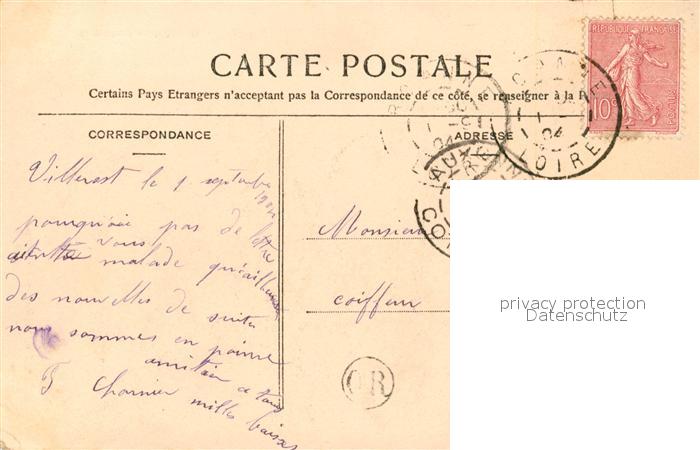 CARTE POSTALE
Certains Pays Etrangers n'acceptant pas la Correspondance de ce côté, se renseigner à la P
REPUBLIQUE FRANÇAISE
10c
POSTES
CORRESPONDANCE
ADRESSE
04
LOIRE
Villerest le 1 septembre
1904
pourquoi pas de lettre
vous malade
des nouvelles de suite
nous sommes en peine
amitiés a tous
milles baises
Monsieur
coiffeur
OR
privacy protection
Datenschutz